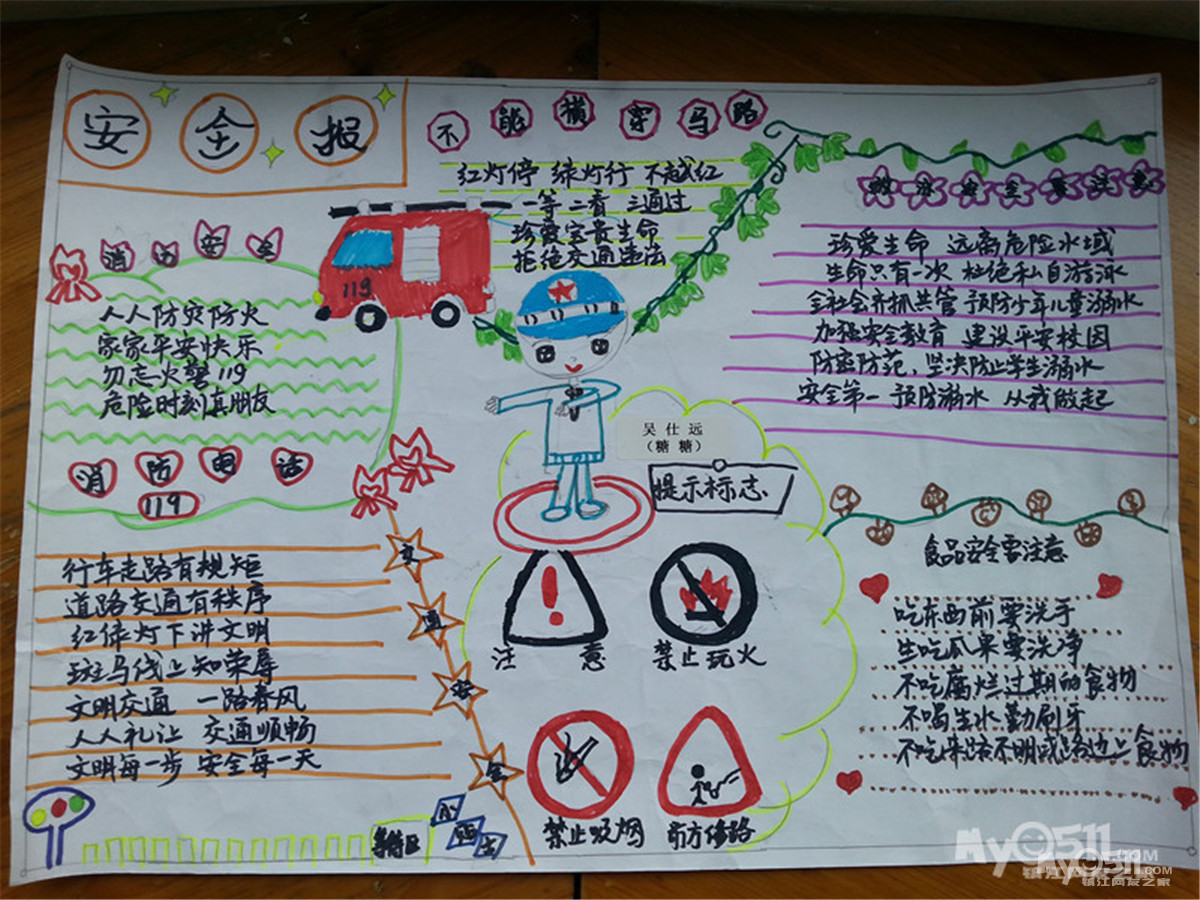 安全报
不能横穿马路
红灯停 绿灯行 不越红
一等 二看 三通过
珍爱宝贵生命
拒绝交通违法
消防安全
人人防灾防火
家家平安快乐
勿忘火警119
危险时刻真朋友
119
消防电话
119
防溺安全要注意
珍爱生命 远离危险水域
生命只有一次 杜绝私自游泳
全社会齐抓共管 预防少年儿童溺水
加强安全教育 建设平安校园
防密防范、坚决防止学生溺水
安全第一 预防溺水 从我做起
吴仕远
(糖糖)
提示标志
注意
禁止玩火
禁止吸烟
前方修路
交通安全
行车走路有规矩
道路交通有秩序
红绿灯下讲文明
斑马线上知荣辱
文明交通 一路春风
人人礼让 交通顺畅
文明每一步 安全每一天
等待区
食品安全要注意
吃东西前要洗手
生吃瓜果要洗净
不吃腐烂过期的食物
不喝生水勤刷牙
不吃来路不明或路边上食物
My0511.COM
镇江网友之家